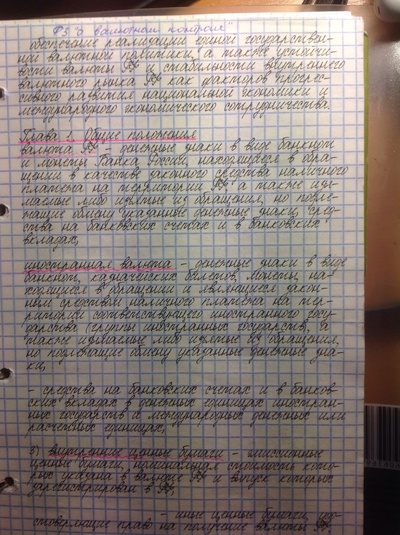 ФЗ "О валютном контроле"
обеспечение реализации единой государствен-
ной валютной политики, а также устойчи-
вости валюты РФ и стабильности внутреннего
валютного рынка РФ как факторов прогрес-
сивного развития национальной экономики и
международного экономического сотрудничества.
Глава 1. Общие положения
валюта РФ - денежные знаки в виде банкнот
и монеты Банка России, находящиеся в обра-
щении в качестве законного средства наличного
платежа на территории РФ, а также изы-
маемые либо изъятые из обращения, но подле-
жащие обмену указанные денежные знаки, сред-
ства на банковских счетах и в банковских
вкладах;
иностранная валюта - денежные знаки в виде
банкнот, казначейских билетов, монеты, на-
ходящиеся в обращении и являющиеся закон-
ным средством наличного платежа на тер-
ритории соответствующего иностранного госу-
дарства (группы иностранных государств), а
также изымаемые либо изъятые из обращения,
но подлежащие обмену указанные денежные зна-
ки;
- средства на банковских счетах и в банков-
ских вкладах в денежных единицах иностран-
ных государств и международных денежных или
расчетных единицах;
3) внутренние ценные бумаги - эмиссионные
ценные бумаги, номинальная стоимость кото-
рых указана в валюте РФ и выпуск которых
зарегистрирован в РФ;
- иные ценные бумаги, удо-
стоверяющие право на получение валюты РФ